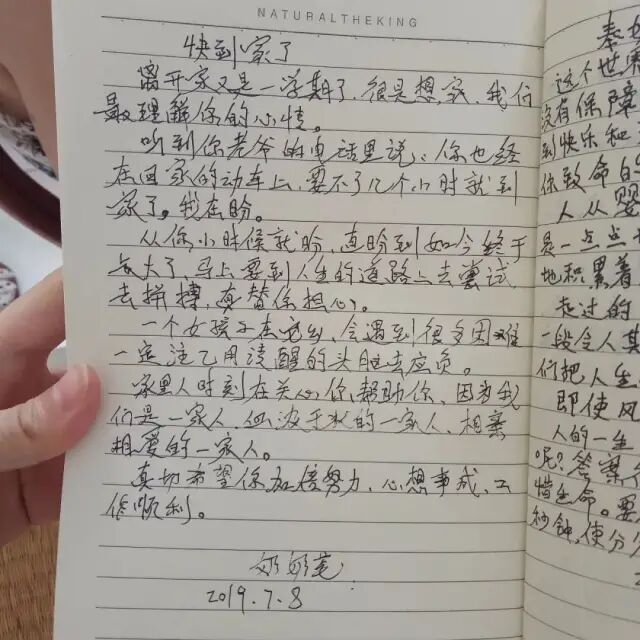 NATURALTHEKING
快到家了
离开家又是一学期了，很是想家，我们
最理解你的心情。
听到你老爷的电话里说：你也经
在回家的动车上，要不了几个小时就到
家了。我在盼。
从你小时候就盼，直盼到如今终于
长大了，马上要到人生的道路上去尝试
去拼搏，真替你担心。
一个女孩子在它乡，会遇到很多困难
一定注乙用清醒的头脑去应负。
家里人时刻在关心你，帮助你，因为我
们是一家人，血浓于水的一家人，相亲
相爱的一家人。
真切希望你加倍努力，心想事成，工
作顺利。
奶奶
2019.7.8
这个世界
没有保障
到快乐和
你致命的
人从婴
是一点点
地积累着
走过的
一段令人
们把人生
即使风
人的一生
呢？答案
惜生命。要
秒钟，使分